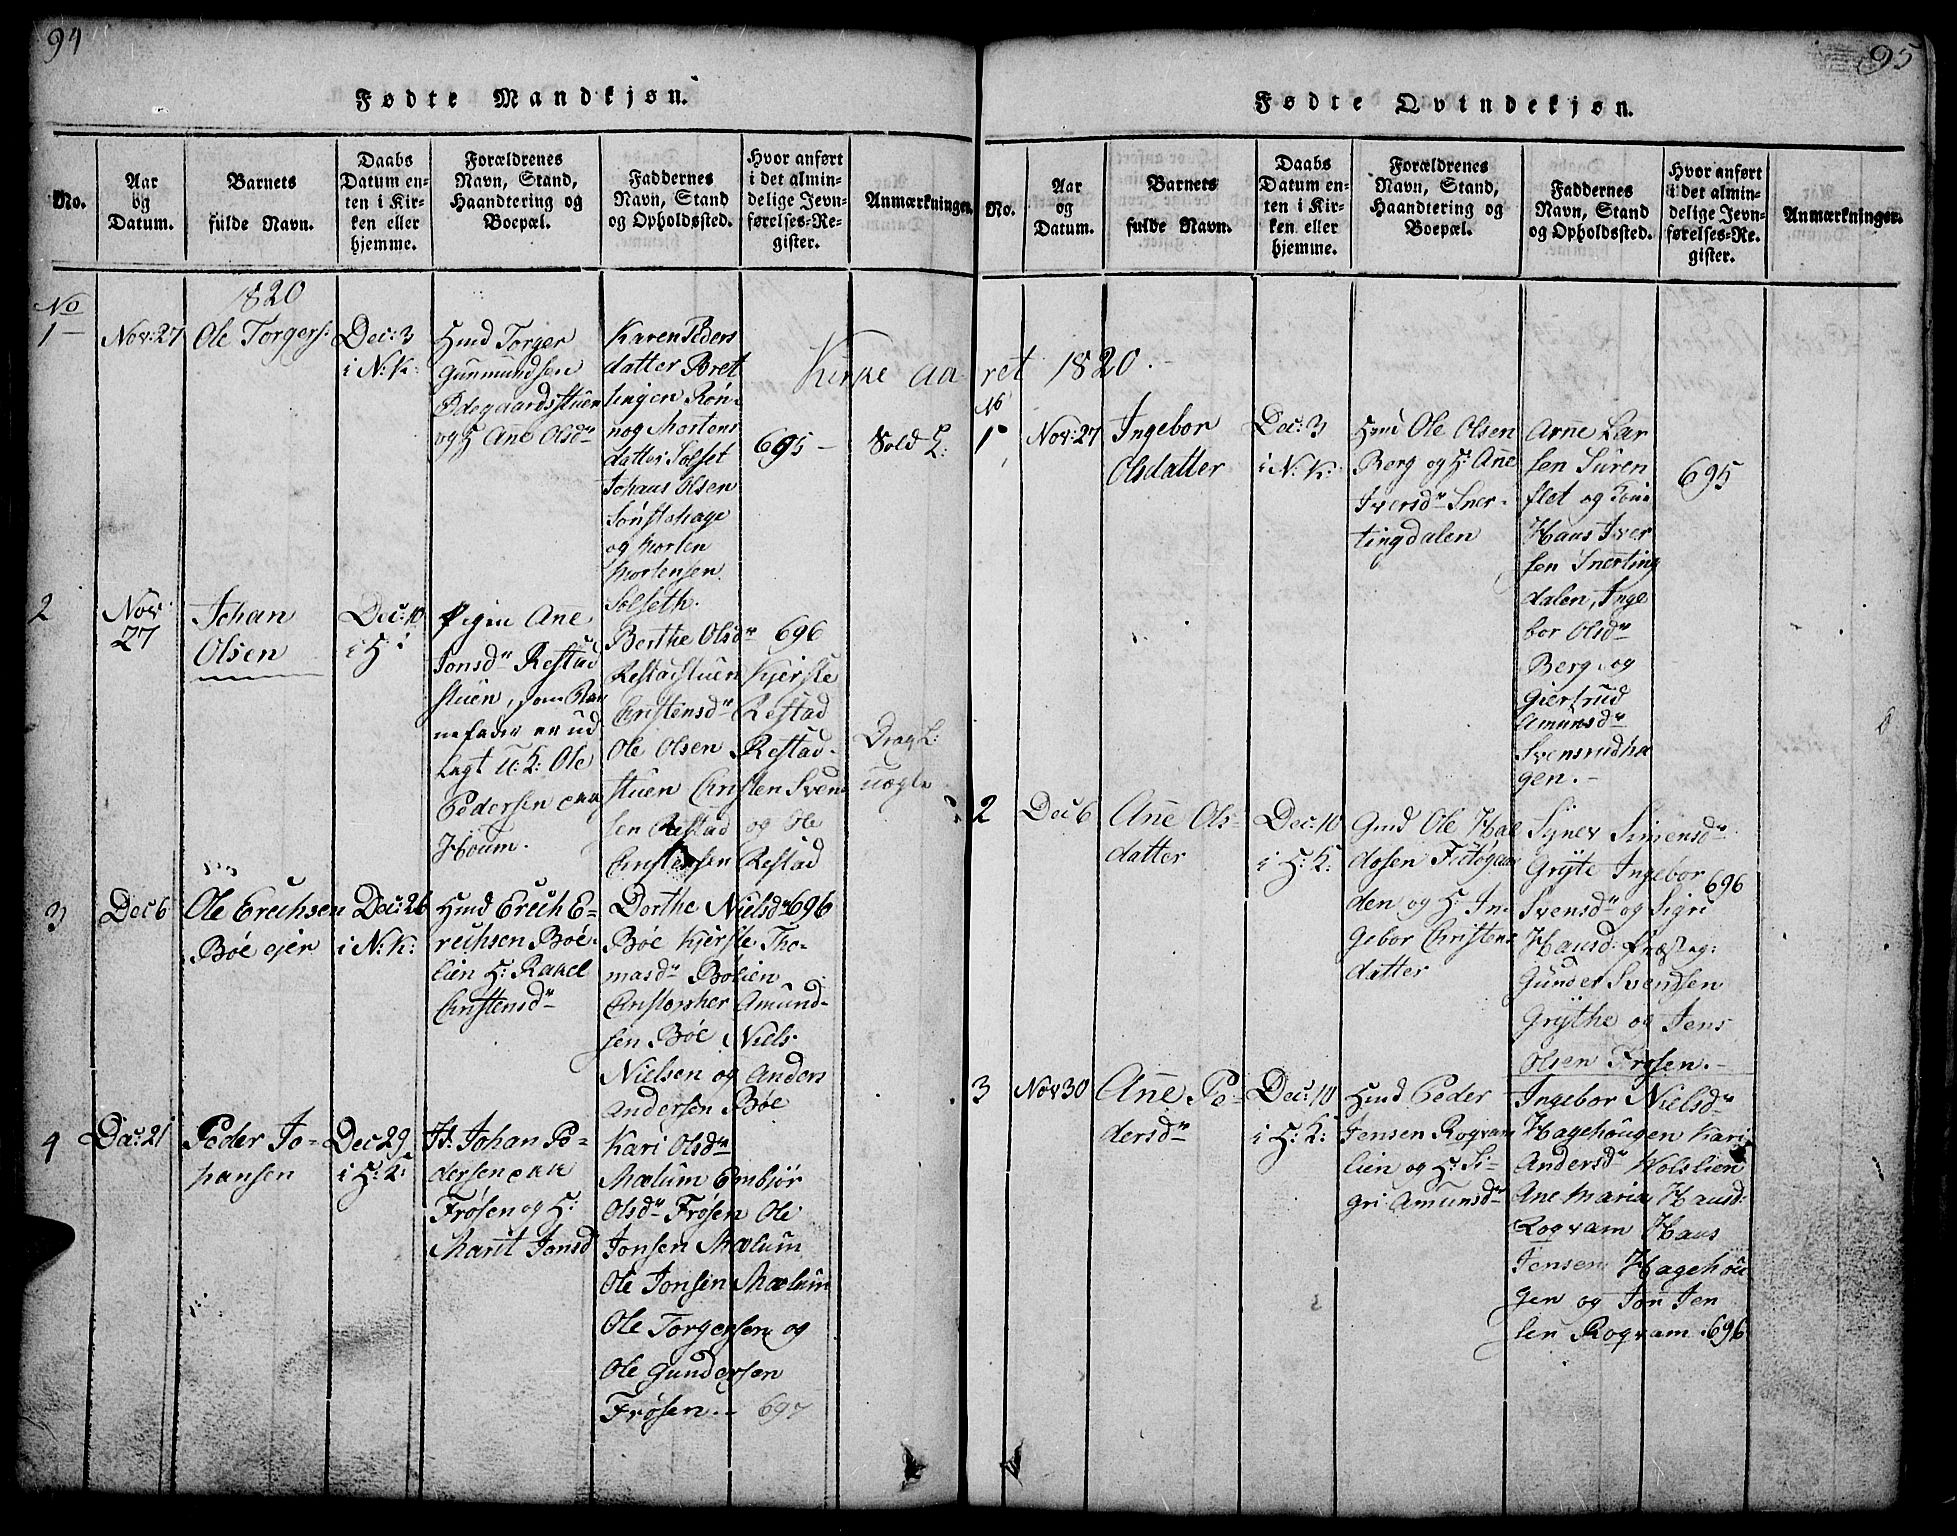 94
Fødte Mandkjøn.
No.
Aar
og
Datum.
Barnets
fulde Navn.
Daabs
Datum en-
ten i Kir-
ken eller
hjemme.
Forældrenes
Navn, Stand,
Haandtering og
Boepæl.
Faddernes
Navn, Stand
og Opholdssted.
Hvor anført
i det almin-
delige Jevn-
førelses-Re-
gister.
Anmærkninger.
1820
No
1
Nov: 27
Ole Torgers:
Dec: 3
i N: K:
Hmd Torger
Gunmundsen
Ødegaardsstuen
og H: Ane Olsdr
Karen Peders
datter Bret
lingen Røn-
nog Mortens
datter Solset
Johans Olsen
Sønstehage
og Morten
Mortensen
Solseth.
695
Sold L:
2
Nov:
27
Johan
Olsen
Dec: 10
i H:
Pigen Ane
Jonsdr Restad
stuen, som Bar
nefader er ud
lagt U: K: Ole
Pedersen
Houm.
Berthe Olsdr 696
Restadstuen Kjerste
Christensdr Restad
Ole Olsen Restad-
stuen Christen Sven
sen Restad og Ole
Christensen Restad
Drag. L:
uægte
3
Dec 6
Ole Erichsen
Bøe ejer
Dec: 26
i N: K:
Hmd Erich E-
richsen Bøe-
lien H: Rakel
Christensdr
Dorthe Nielsdr 696
Bøe Kjerste Tho-
masdr Bølien
Christopher Amund-
sen Bøe Niels
Nielsen og Anders
Andersen Bøe
4
Dec: 21
Peder Jo-
hansen
Dec 29
i H: K:
H: Johan Pe-
dersen
Frøsen og H:
Marit Jonsd
Kari Olsdr
Mælum Embjør
Olsdr Frøsen Ole
Jonsen Mælum
Ole Jonsen Mælum
Ole Torgersen og
Ole Gundersen
Frøsen. 697
Kirke aaret 1820.
95
Fødte Qvindekjøn.
No.
Aar
og
Datum.
Barnets
fulde Navn.
Daabs
Datum en-
ten i Kir-
ken eller
hjemme.
Forældrenes
Navn, Stand,
Haandtering og
Boepæl.
Faddernes
Navn, Stand
og Opholdssted.
Hvor anført
i det almin-
delige Jevn-
førelses-Re-
gister.
Anmærkninger.
No
1
Nov: 27
Ingebor
Olsdatter
Dec: 3
i N: K:
Hmd Ole Olsen
Berg og H: Ane
Iversdr Sner-
tingdalen
Arne Lar
sen Suren
flet og
Hans Iver
sen Snerting
dalen, Inge
bor Olsdr
Berg, og
Giertrud
Amunsdr
Svensrudha
gen.
695
2
Dec 6
Ane Ols-
datter
Dec: 10
i H: K:
Gmd Ole Hal
dosen Fultøgaar
den og H: In-
gebor Christens
datter
Synev Simensdr
Gryte Ingebor 696
Svensdr og Sigri
Hansd: Præsteg:
Gunder Svendsen
Grythe og Jens
Olsen Frøsen.
3
Nov 30
Ane Pe-
dersdr
Dec: 10
i H: K:
Hmd Peder
Jensen Rogvam
lien og H: Si-
gri Amunsdr
Ingebor Nielsdr
Hagehougen Kari
Andersdr Kolslien
Ane Maria Hansd:
Rogvam Hans
Jensen Hagehou
gen og Jon Jen
sen Rogvam. 696